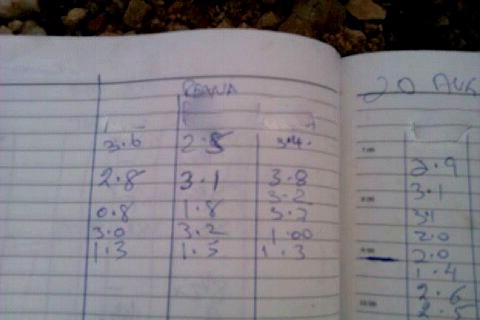 3.6 2.5 3.4.
2.8 3.1 3.8
3.2
0.8 1.8 3.2
3.0 3.2 1.00
1.3 1.5 1.3
20 AUG
7:00
2.9
3.1
8:00
3.1
2.0
9:00
2.0
1.4
10:00
2.6
2.5